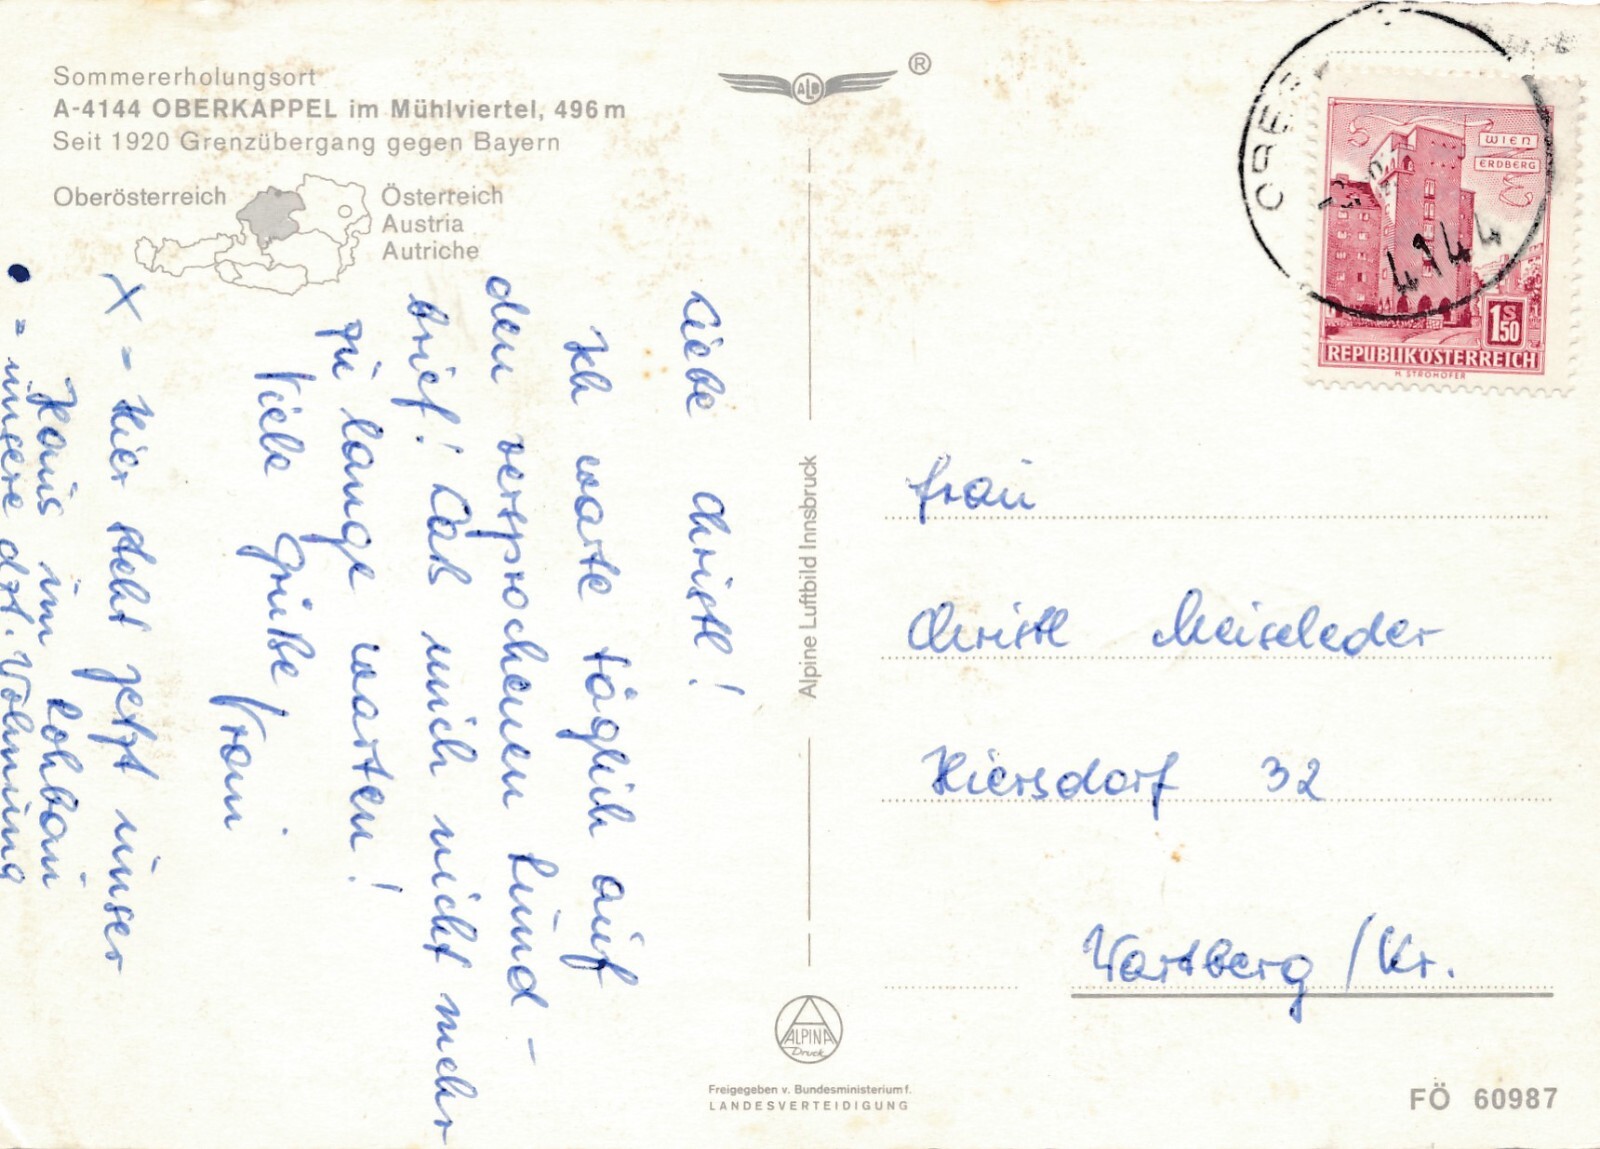 Sommererholungsort
A-4144 OBERKAPPEL im Mühlviertel, 496 m
Seit 1920 Grenzübergang gegen Bayern
Oberösterreich
Österreich
Austria
Autriche
ALB
®
Liebe Christl!
Ich warte täglich auf
den versprochenen Kund-
brief! Laß mich nicht mehr
zu lange warten!
Viele Grüße
X = Hier steht jetzt unser
Haus im Rohbau
• = unsere dzt. Wohnung
Alpine Luftbild Innsbruck
WIEN
ERDBERG
1S50
REPUBLIK ÖSTERREICH
H. STROHOFER
4144
Frau
Christl Meiseleder
Hiersdorf 32
Wartberg / Kr.
ALPINA
Druck
Freigegeben v. Bundesministerium f.
LANDESVERTEIDIGUNG
FÖ 60987